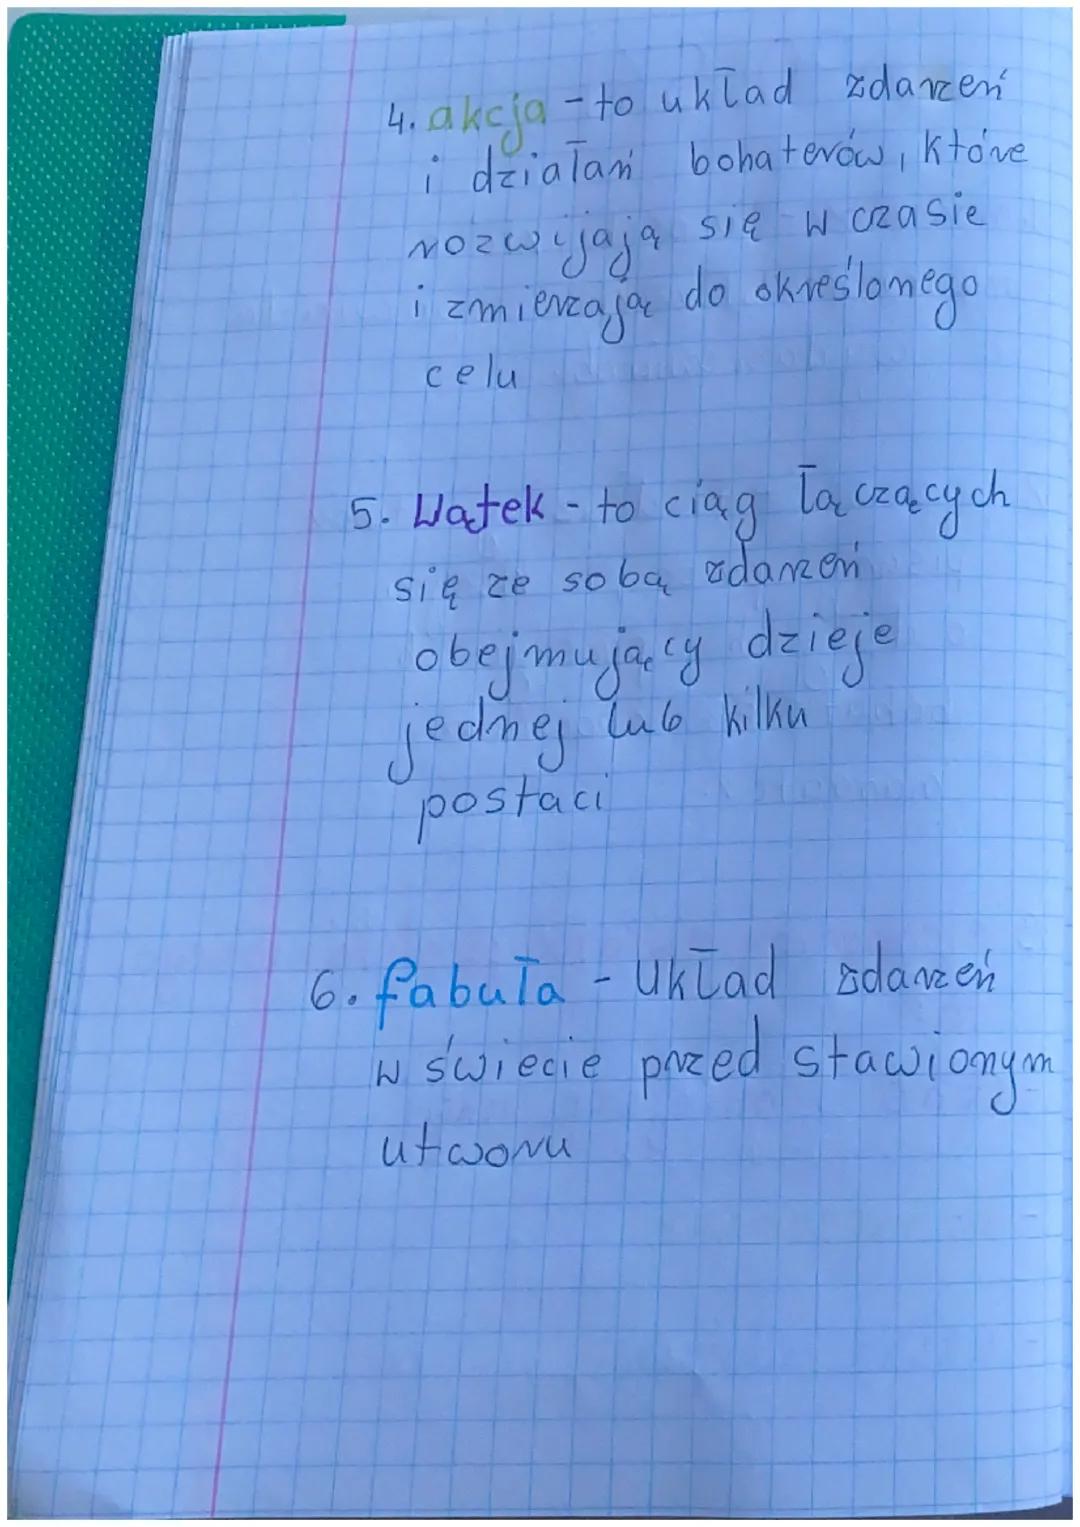 4. akcja - to układ zdarzeń
i działań bohaterów, które
rozwijają się w czasie
i zmierzają do określonego
celu
5. Wątek - to ciąg łączących
się ze sobą zdarzeń
obejmujący dzieje
jednej lub kilku
postaci
6. fabuła - Układ zdarzeń
w świecie przed stawionym
utworu